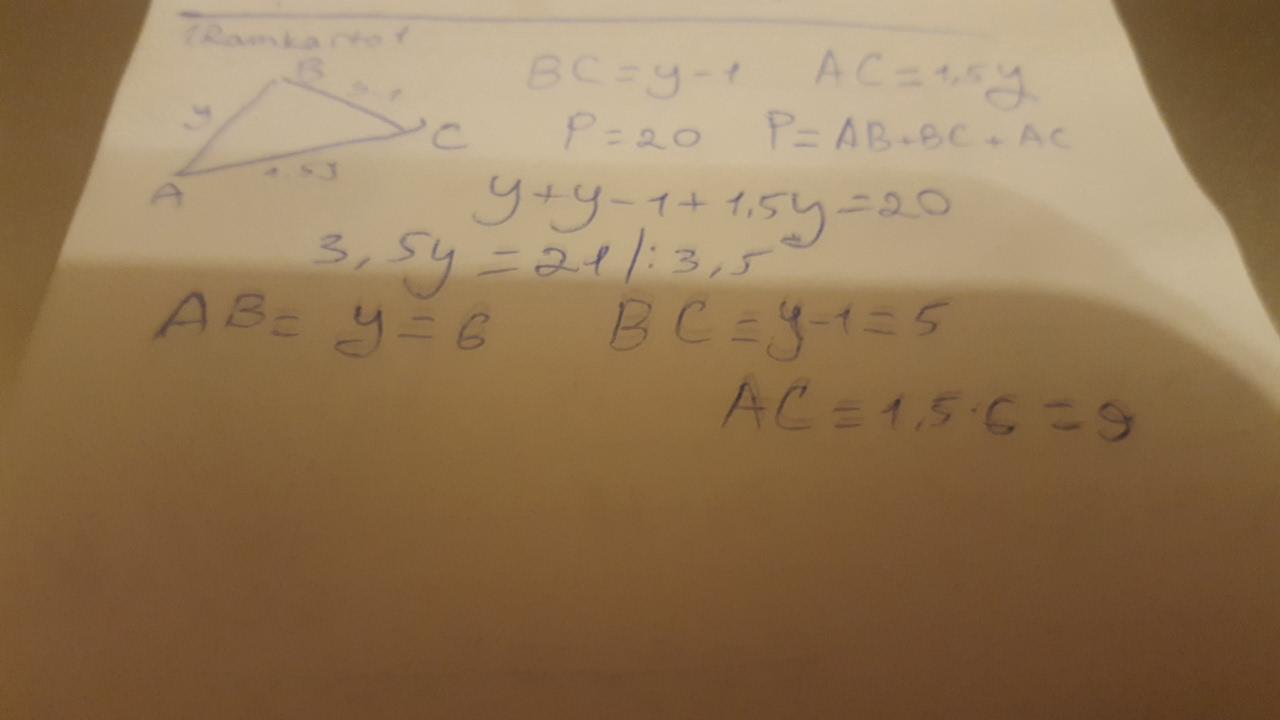 B
y
y-1
C
A
1.5y
BC=y-1 AC=1,5y
P=20 P=AB+BC+AC
y+y-1+1,5y=20
3,5y=21/:3,5
AB=y=6 BC=y-1=5
AC=1,5·6=9